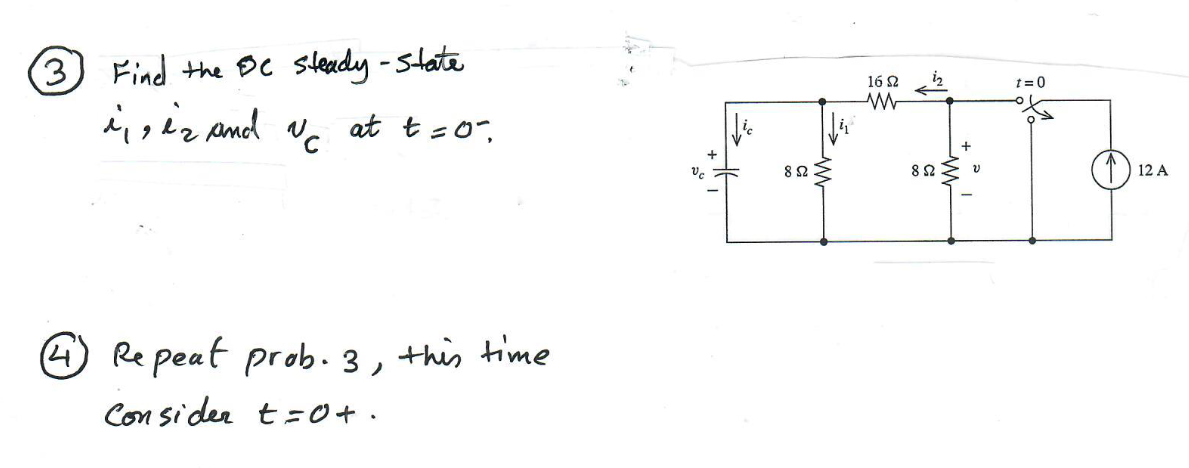 ③ Find the DC steady-state
i₁, i₂ and v_C at t=0⁻.
16 Ω
i₂
t = 0
i_c
i₁
+
v_c
−
8 Ω
8 Ω
+
v
−
12 A
④ Repeat prob. 3, this time
Consider t=0+.